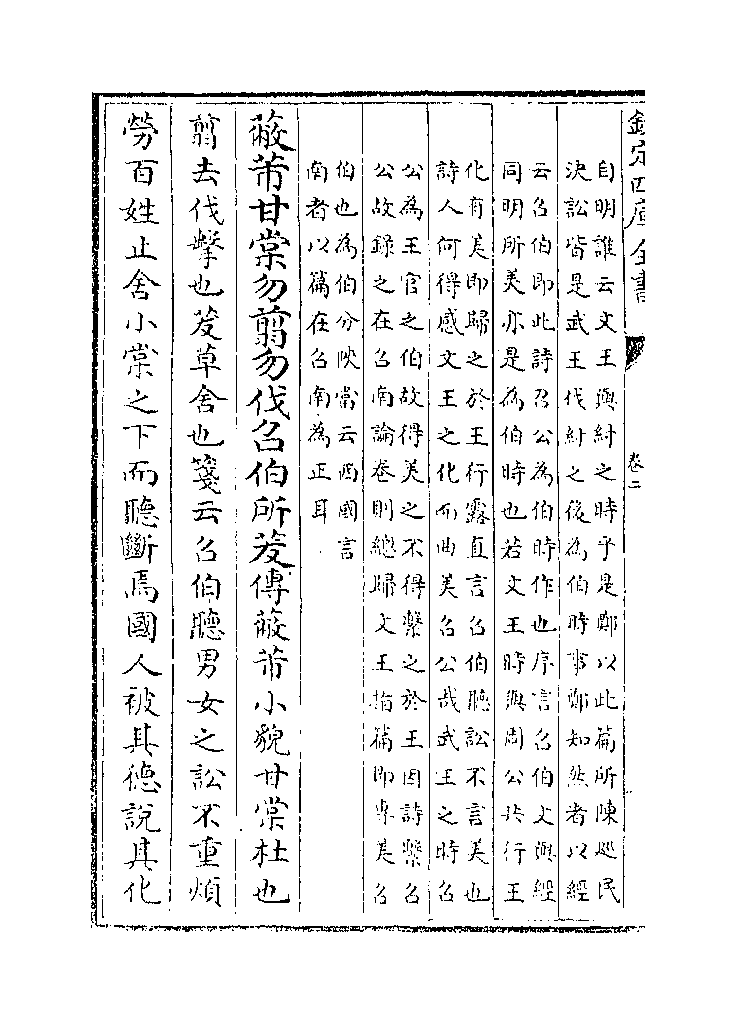 欽定四庫全書
卷二
自明誰云文王與紂之時乎是鄭以此篇所陳廵民
決訟皆是武王伐紂之後為伯時事鄭知然者以經
云召伯即此詩召公為伯時作也序言召伯文與經
同明所美亦是為伯時也若文王時與周公共行王
化有美即歸之於王行露直言召伯聽訟不言美也
詩人何得感文王之化而曲美召公哉武王之時召
公為王官之伯故得美之不得繫之於王因詩繫召
公故錄之在召南論卷則總歸文王指篇即專美召
伯也為伯分陜當云西國言
南者以篇在召南為正耳
蔽芾甘棠勿翦勿伐召伯所茇傳蔽芾小貌甘棠杜也
翦去伐擊也茇草舍也箋云召伯聽男女之訟不重煩
勞百姓止舍小棠之下而聽斷焉國人被其德說其化